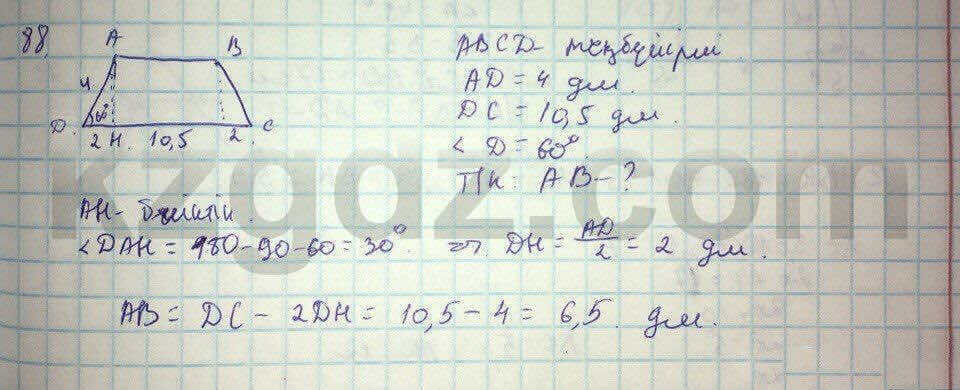 88.
A B
4
60°
D. 2 H. 10,5 2 C
ABCD - теңбүйірлі
AD = 4 дм.
DC = 10,5 дм.
< D = 60°.
Т/к: AB - ?
AH - биіктік.
< DAH = 180 - 90 - 60 = 30°. => DH = AD/2 = 2 дм.
AB = DC - 2DH = 10,5 - 4 = 6,5 дм.
kzgdz.com